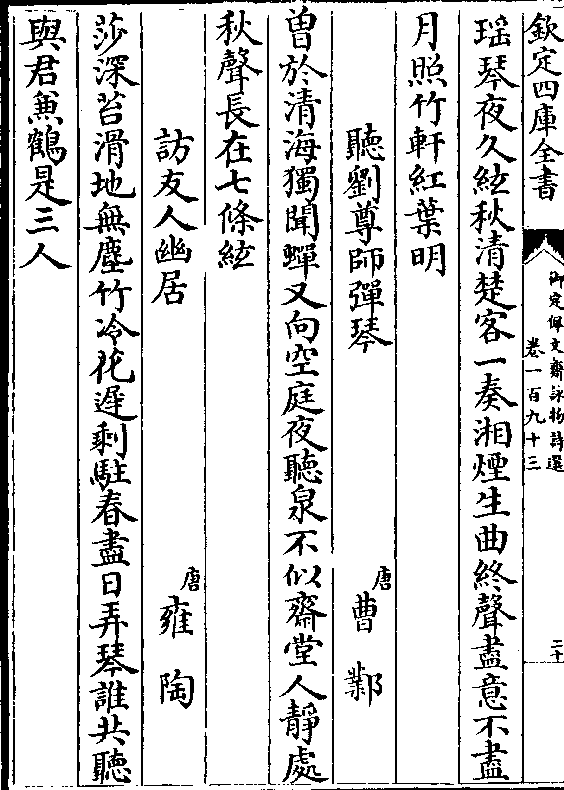 欽定四庫全書
御定佩文齋詠物詩選
卷一百九十三
二十
瑶琴夜久絃秋清楚客一奏湘煙生曲終聲盡意不盡
月照竹軒紅葉明
聽劉尊師彈琴
唐曹鄴
曽於清海獨聞蟬又向空庭夜聽泉不似齋堂人靜處
秋聲長在七條絃
訪友人幽居
唐雍陶
莎深苔滑地無塵竹冷花遲剩駐春盡日弄琴誰共聽
與君兼鶴是三人